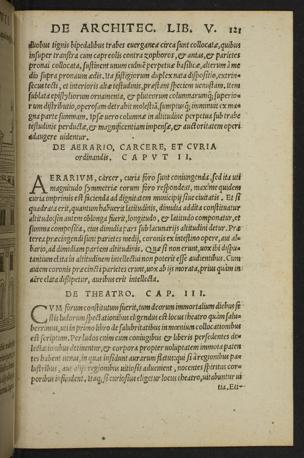 DE ARCHITEC. LIB. V. 121
duobus tignis bipedalibus trabes euerganeæ circa sunt collocatæ, quibus
insuper transtra cum capreolis contra zophoros, & antas, & parietes
pronai collocata, sustinent unum culmen perpetuæ basilicæ, alterum à me
dio supra pronaum ædis. Ita fastigiorum duplex nata dispositio, extrin
secus tecti, & interioris altæ testudinis, præstant speciem uenustam, item
sublata epistyliorum ornamenta, & pluteorum columnarumq; superio=
rum distributio, operosam detrahit molestiã, sumptusq; imminuit ex ma
gna parte summam, Ipsæ uero columnæ in altitudine perpetua sub trabe
testudinis perductæ, & magnificentiam impensæ, & auctoritatem operi
adaugere uidentur.
DE AERARIO, CARCERE, ET CVRIA
ordinandis. CAPVT II.
AERARIVM, carcer, curia foro sunt coniungenda. Sed ita uti
magnitudo symmetriæ eorum foro respondeat, maxime quidem
curia imprimis est facienda ad dignitatem municipij siue ciuitatis. Et si
quadrata erit, quantum habuerit latitudinis, dimidia addita constituatur
altitudo. sin autem oblonga fuerit, longitudo, & latitudo componatur, et
summa composita, eius dimidia pars sub lacunarijs altitudini detur. Præ
terea præcingendi sunt parietes medij, coronis ex intestino opere, aut al-
bario, ad dimidiam partem altitudinis. Quæ si non erunt, uox ibi dispu=
tantium elata in altitudinem intellectui non poterit esse audientibus. Cum
autem coronis præcincti parietes erunt, uox ab ijs morata, prius quàm in
aëre elata dissipetur, auribus erit intellecta.
DE THEATRO. CAP. III.
CVM forum constitutum fuerit, tum deorum immortalium diebus fe
stis ludorum spectationibus eligendus est locus theatro quàm salu=
berrimus, uti in primo libro de salubritatibus in mœnium collocationibus
est scriptum. Per ludos enim cum coniugibus & liberis persedentes de=
lectationibus detinentur, & corpora propter uoluptatem immota paten
tes habent uenas, in quas insidunt aurarum flatus: qui si à regionibus pa-
lustribus, aut alijs regionibus uitiosis aduenient, nocentes spiritus cor=
poribus infundent, Itaq; si curiosius eligetur locus theatro, uitabuntur ui
tia. Eti=